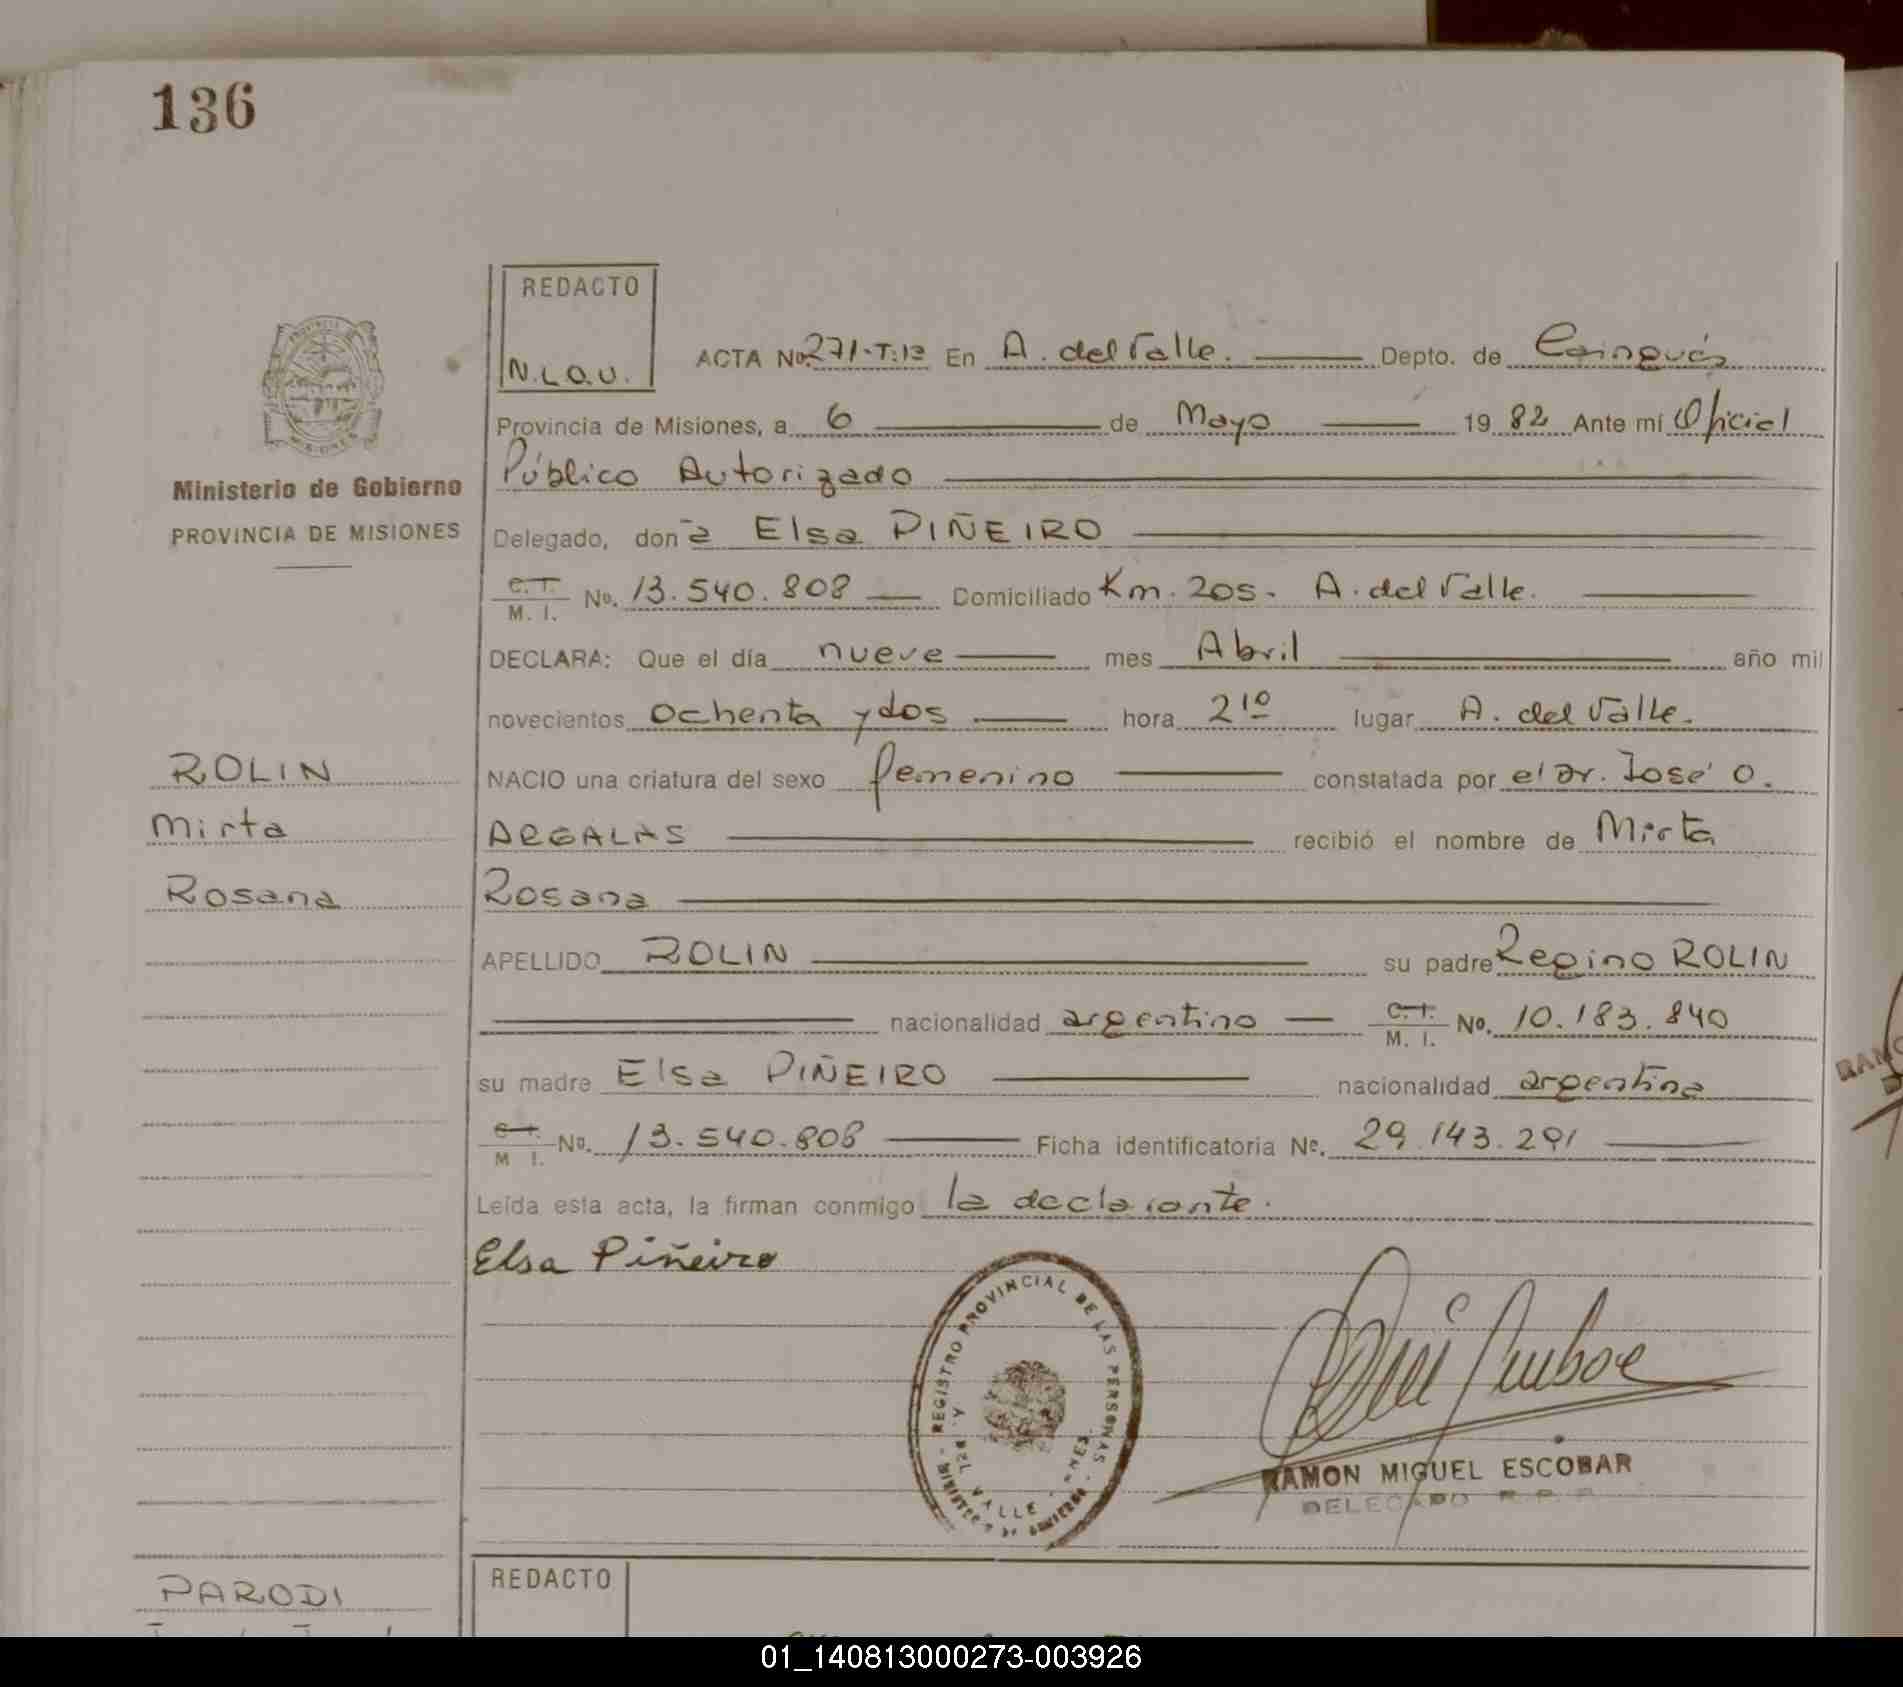 136
REDACTO
N.L.O.U.
ACTA No. 271-T:1º En A. del Valle. Depto. de Cainguás
Provincia de Misiones, a 6 de Mayo 19 82 Ante mí Oficial
Público Autorizado
Ministerio de Gobierno
PROVINCIA DE MISIONES
Delegado, don ã Elsa PIÑEIRO
C. T. M. I. No. 13.540.808 Domiciliado Km. 205. A. del Valle.
DECLARA: Que el día nueve mes Abril año mil
novecientos ochenta y dos hora 21º lugar A. del Valle.
ROLIN
NACIO una criatura del sexo femenino constatada por el Dr. José O.
Mirta
ARGALAS recibió el nombre de Mirta
Rosana
Rosana
APELLIDO ROLIN su padre Regino ROLIN
nacionalidad argentino C. T. M. I. No. 10.183.840
su madre Elsa PIÑEIRO nacionalidad argentina
C. T. M I. No. 13.540.808 Ficha identificatoria No. 29.143.291
Leída esta acta, la firman conmigo la declarante.
Elsa Piñeiro
REGISTRO PROVINCIAL DE LAS PERSONAS
VALLE
RAMON MIGUEL ESCOBAR
DELEGADO R. P. P.
PARODI
REDACTO
01_140813000273-003926